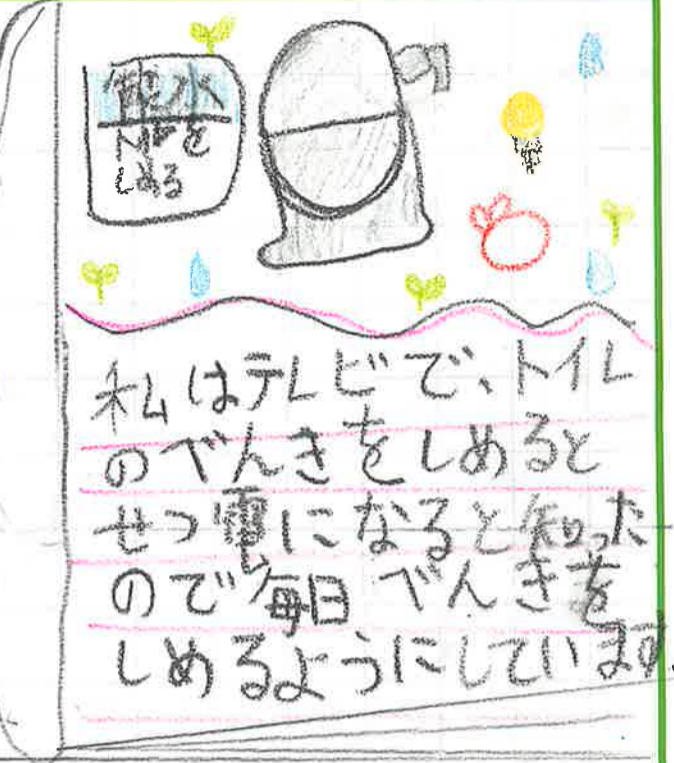 水
しめる
私はテレビで、トイレ
のべんきをしめると
せつ電になると知った
ので毎日べんきを
しめるようにしています。